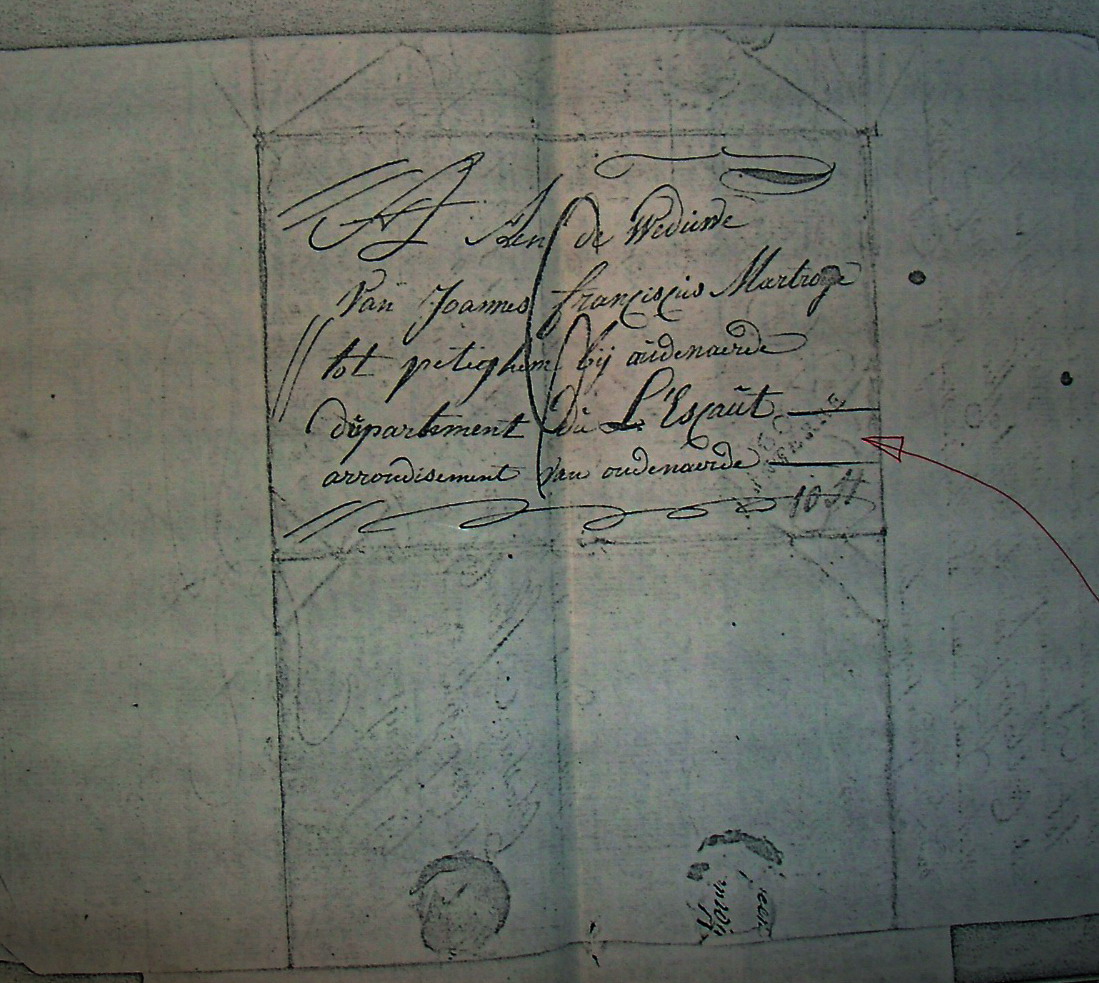 Aen de Weduwe
Van Joannes franciscus Martroye
tot peteghem bij audenaerde
département du L'Escaut
arrondisement van oudenaerde
10 St